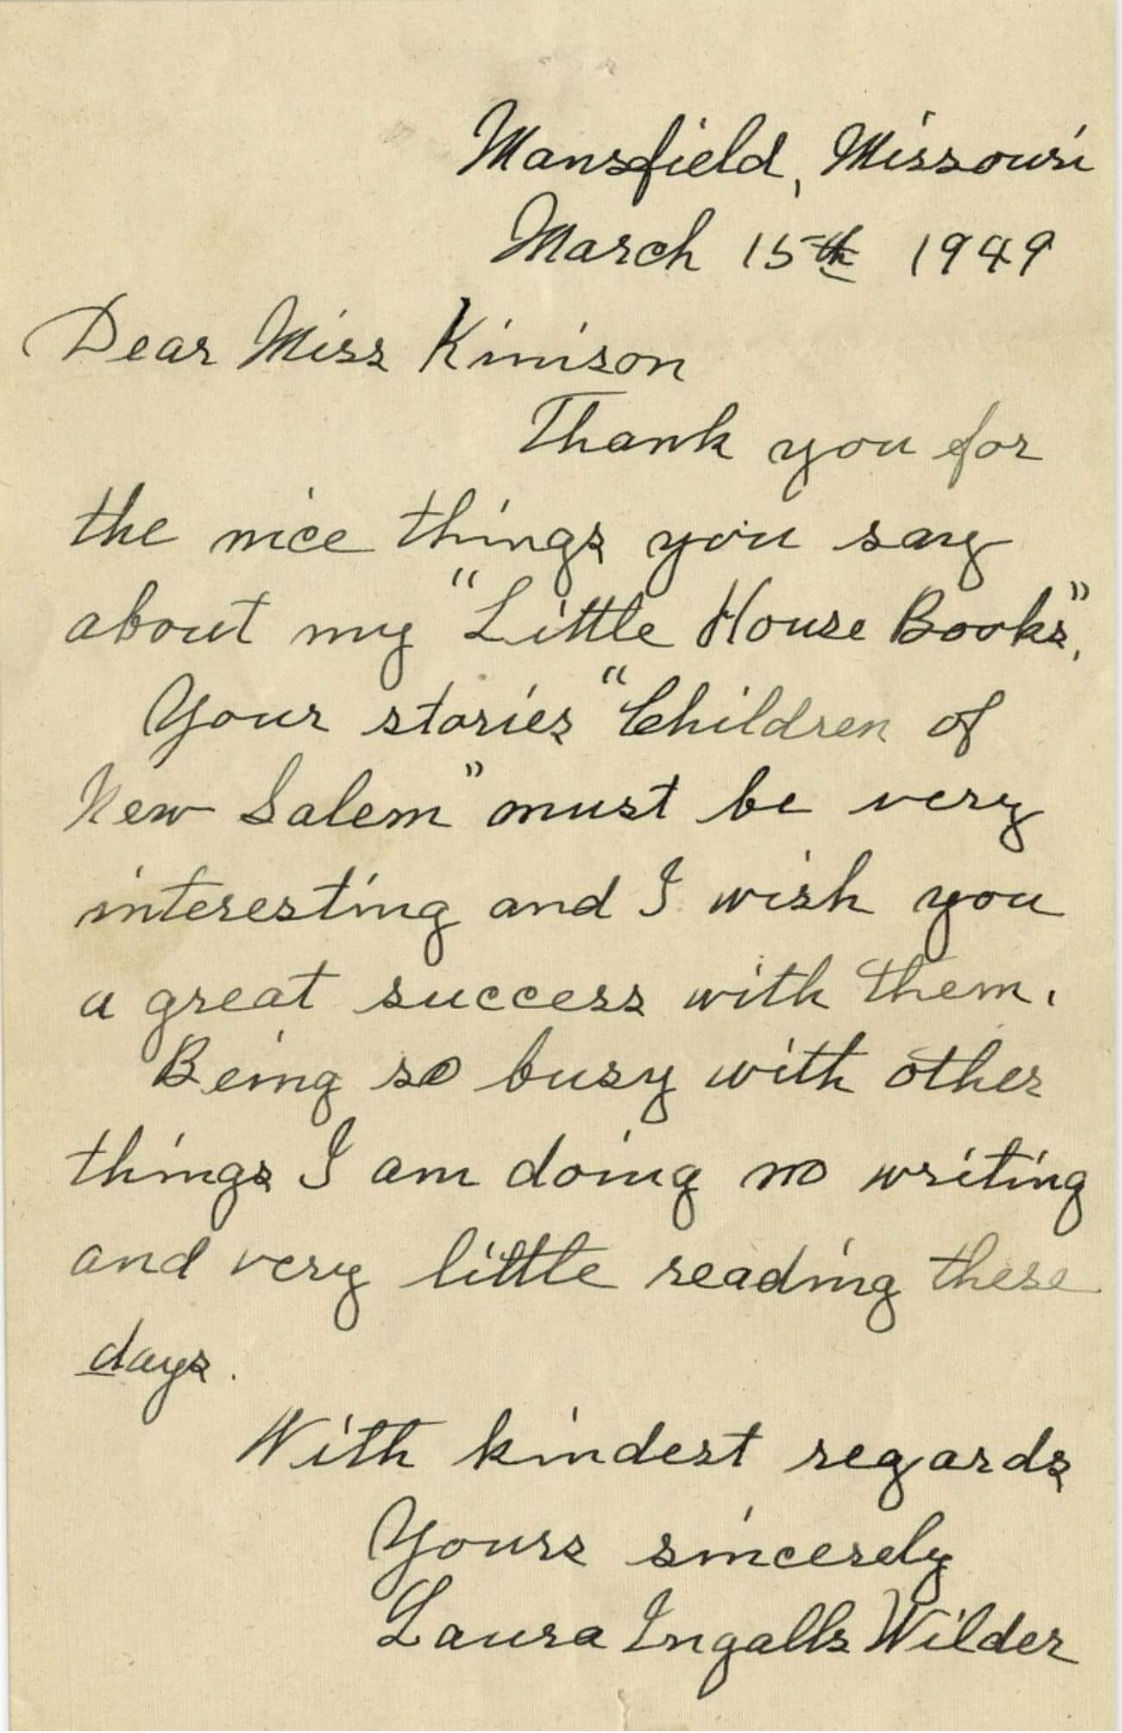 Mansfield, Missouri
March 15th 1949
Dear Miss Kinison
Thank you for
the nice things you say
about my "Little House Books".
Your stories "Children of
New Salem" must be very
interesting and I wish you
a great success with them.
Being so busy with other
things I am doing no writing
and very little reading these
days.
With kindest regards
Yours sincerely
Laura Ingalls Wilder